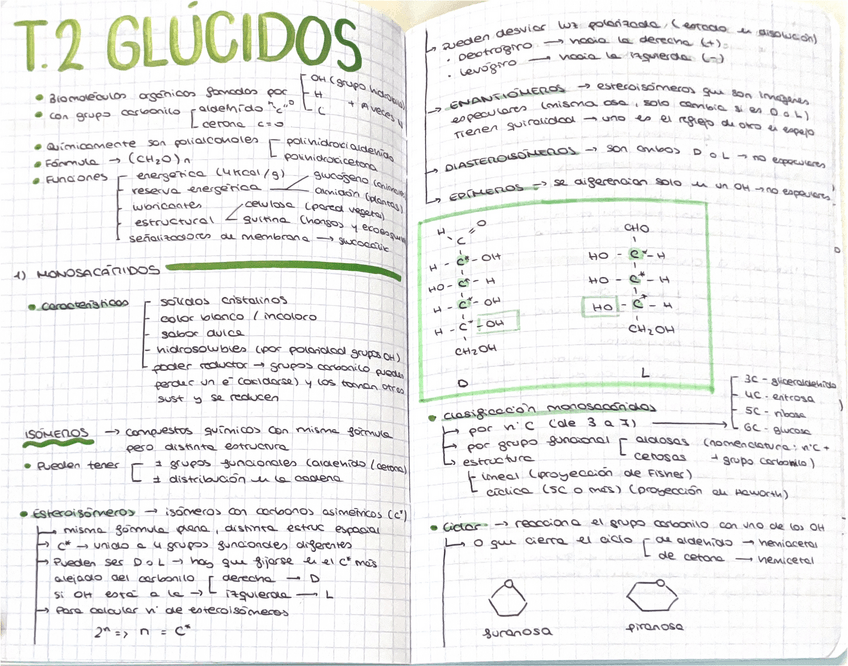 T.2 GLÚCIDOS
• Biomoléculas orgánicas formadas por [ OH (grupo hidroxilo)
H
C + A veces N
• con grupo carbonilo [ aldehído -C=O H
cetona C=O
• Químicamente son polialcoholes [ polihidroxialdehído
polihidroxicetona
• Fórmula → (CH2O)n
• Funciones
energética (4Kcal/g)
reserva energética glucógeno
almidón (plantas)
lubricantes
estructural celulosa (pared vegetal)
quitina (hongos y
señalizadores de membrana →
1) MONOSACÁRIDOS
• Características
sólidos cristalinos
color blanco / incoloro
sabor dulce
hidrosolubles (por polaridad grupos OH)
poder reductor → grupos carbonilo pueden
perder un e- (oxidarse) y los toman otras
sust y se reducen
ISÓMEROS → compuestos químicos con misma fórmula
pero distinta estructura
• Pueden tener [ ≠ grupos funcionales (aldehído/cetona)
≠ distribución en la cadena
• Esteroisómeros → isómeros con carbonos asimétricos (C*)
→ misma fórmula plana, distinta estruc espacial
→ C* → unido a 4 grupos funcionales diferentes
→ Pueden ser D o L → hay que fijarse en el C* más
alejado del carbonilo [ derecha → D
si OH está a la → izquierda → L
→ Para calcular nº de esteroisómeros
2ⁿ => n = C*
→ Pueden desviar luz polarizada (estado en disolución)
· Dextrógiro → hacia la derecha (+)
· Levógiro → hacia la izquierda (-)
→ ENANTIÓMEROS → esteroisómeros que son imágenes
especulares (misma osa, solo cambia si es D o L)
tienen quiralidad → uno es el reflejo de otro el espejo
→ DIASTEROISÓMEROS → son ambos D o L → no especulares
→ EPÍMEROS → se diferencian solo en un OH → no especulares
H O
C
H - C* - OH
HO - C* - H
H - C* - OH
H - C* - OH
CH2OH
D
CHO
HO - C* - H
HO - C* - H
HO - C* - H
CH2OH
L
• Clasificación monosacáridos
→ por nºC (de 3 a 7) →
3C - gliceraldehído
4C - eritrosa
5C - ribosa
6C - glucosa
→ por grupo funcional [ aldosas (nomenclatura: nºC +
cetosas + grupo carbonilo)
→ estructura
lineal (proyección de Fisher)
cíclica (5C o más) (proyección de Haworth)
• Ciclar → reacciona el grupo carbonilo con uno de los OH
→ O que cierra el ciclo [ de aldehído → hemiacetal
de cetona → hemicetal
furanosa
piranosa